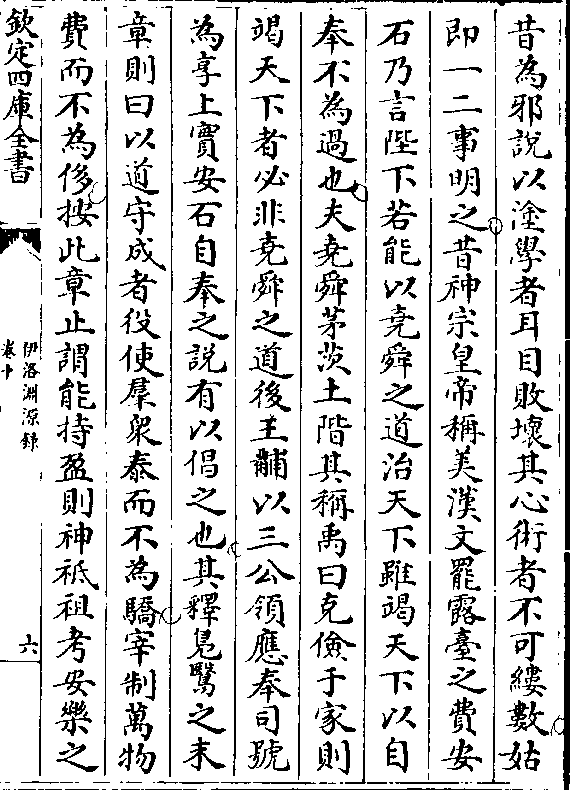 昔為邪說以塗學者耳目敗壞其心術者不可縷數姑
即一二事明之昔神宗皇帝稱美漢文罷露臺之費安
石乃言陛下若能以堯舜之道治天下雖竭天下以自
奉不為過也夫堯舜茅茨土階其稱禹曰克儉于家則
竭天下者必非堯舜之道後王黼以三公領應奉司號
為享上實安石自奉之說有以倡之也其釋鳧鷖之末
章則曰以道守成者役使羣衆泰而不為驕宰制萬物
費而不為侈按此章止謂能持盈則神祗祖考安樂之
欽定四庫全書
伊洛淵源錄
卷十
六